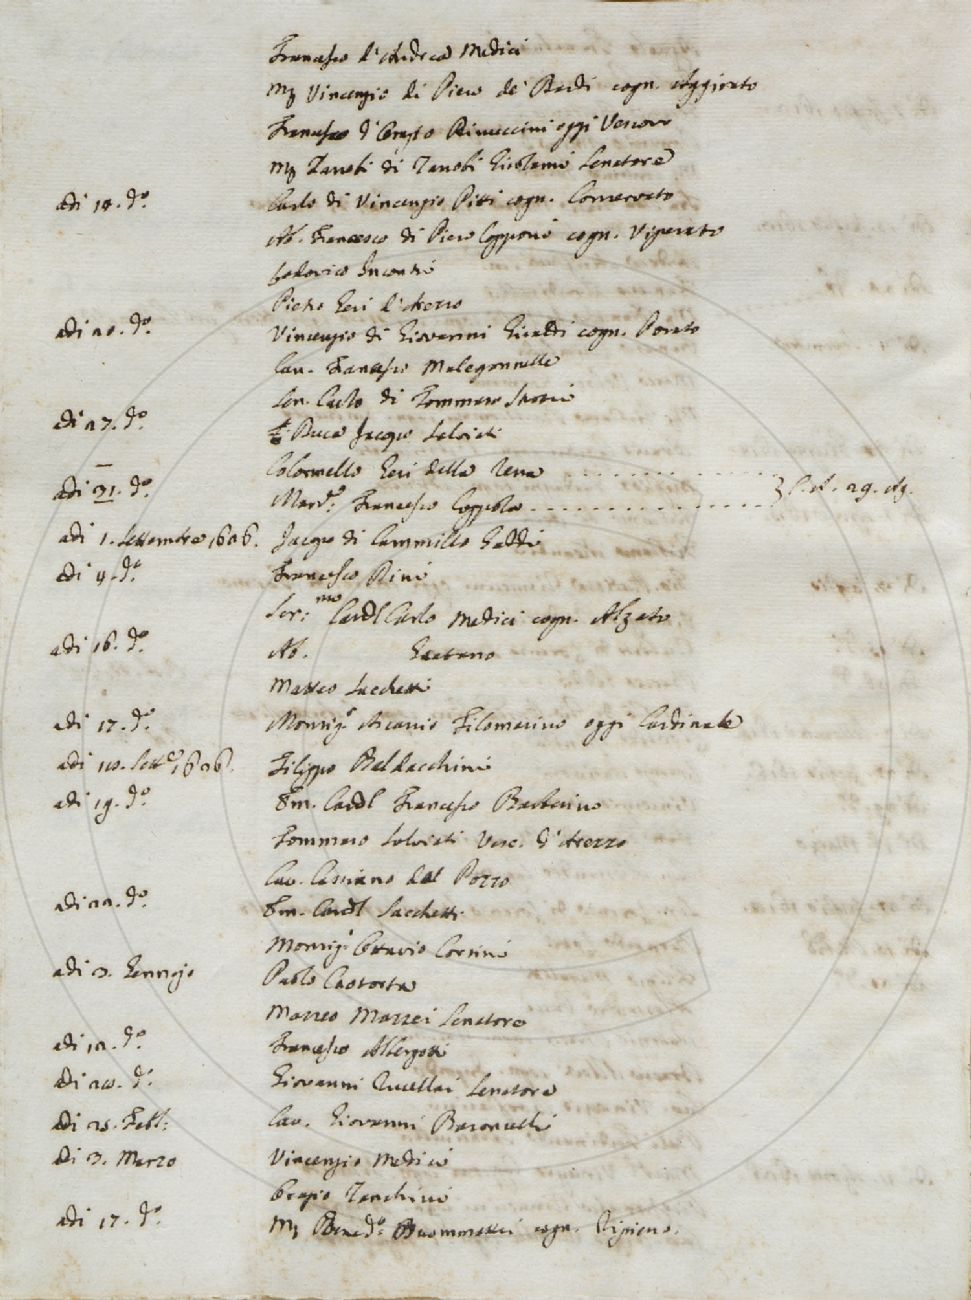 Francesco d'Andrea Medici
Mß Vincenzio di Piero de' Bardi cogn. Aggirato
Francesco d'Orazio Rinuccini oggi Vescovo
Mß Zanobi di Zanobi Girolami Senatore
adi 14. do. Carlo di Vincenzio Pitti cogn. Conservato
Ab. Francesco di Piero Capponi cogn.
Lodovico Incontri
Pietro Geri d'Arezzo
adi 20. do. Vincenzio di Giovanni Giraldi cogn. Porato
Cav. Francesco Malegonnelle
Sen. Carlo di Tommaso Strozzi
adi 27. do. Duca Jacopo Salviati
Colonnello Geri della Rena
adi 31. do. March. Francesco Coppoli
adi 1. Settembre 1626. Jacopo di Cammillo Gaddi
adi 4. do. Francesco Rini
Ser:mo Cardl Carlo Medici cogn. Alzato
adi 16. do. Ab. Gaetano
Matteo Sacchetti
adi 17. do. Monsigr. Ascanio Filomarino oggi Cardinale
adi 18. Sette. 1626. Filippo Baldacchini
adi 19. do. Em. Cardl Francesco Barberino
Tommaso Salviati Vesc. d'Arezzo
Cav. Cassiano dal Pozzo
adi 22. do. Em. Cardl Sacchetti
Monsigr. Ottavio Corsini
adi 3. Gennajo Paolo
Matteo Mazzei Senatore
adi 12. do. Francesco Albergotti
adi 20. do. Giovanni Rucellai Senatore
adi 25. Febb: Cav. Giovanni Baroncelli
adi 3. Marzo Vincenzio Medici
Orazio Zanchini
adi 17. do. Mß Bened.o Buommattei cogn. Ripieno.